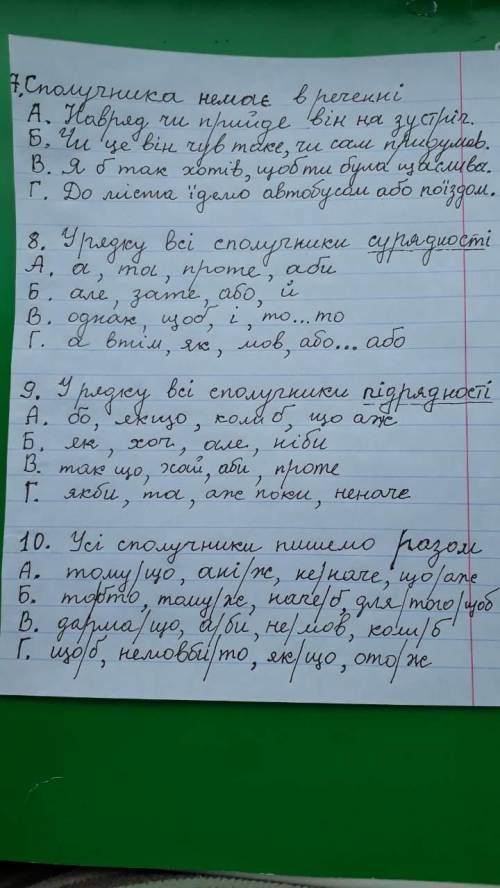 7. Сполучника немає в реченні
А. Навряд чи прийде він на зустріч.
Б. Чи це він чув таке, чи сам придумав.
В. Я б так хотів, щоб ти була щаслива.
Г. До міста їдемо автобусом або поїздом.
8. У рядку всі сполучники сурядності
А. а, та, проте, аби
Б. але, зате, або, й
В. однак, щоб, і, то...то
Г. а втім, як, мов, або... або
9. У рядку всі сполучники підрядності
А. бо, якщо, коли б, що аж
Б. як, хоч, але, ніби
В. так що, хай, аби, проте
Г. якби, та, аж поки, неначе
10. Усі сполучники пишемо разом
А. тому/що, ані/ж, не/наче, що/аж
Б. то/бто, тому/ж, наче/б, для/того/щоб
В. дарма/що, а/би, не/мов, коли/б
Г. що/б, немовби/то, як/що, ото/ж